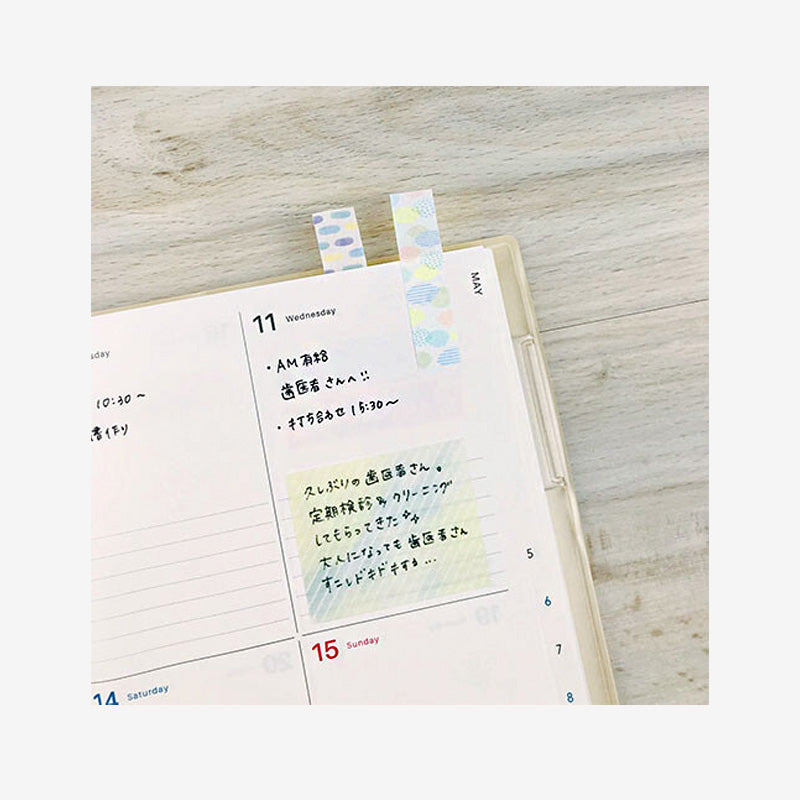 MAY
11 Wednesday
10:30〜
作り
・AM有給
歯医者さんへ!!
・打ち合わせ 15:30〜
久しぶりの歯医者さん。
定期検診&クリーニング
してもらってきた
大人になっても歯医者さん
すこしドキドキする...
14 Saturday
15 Sunday
5
6
7
8